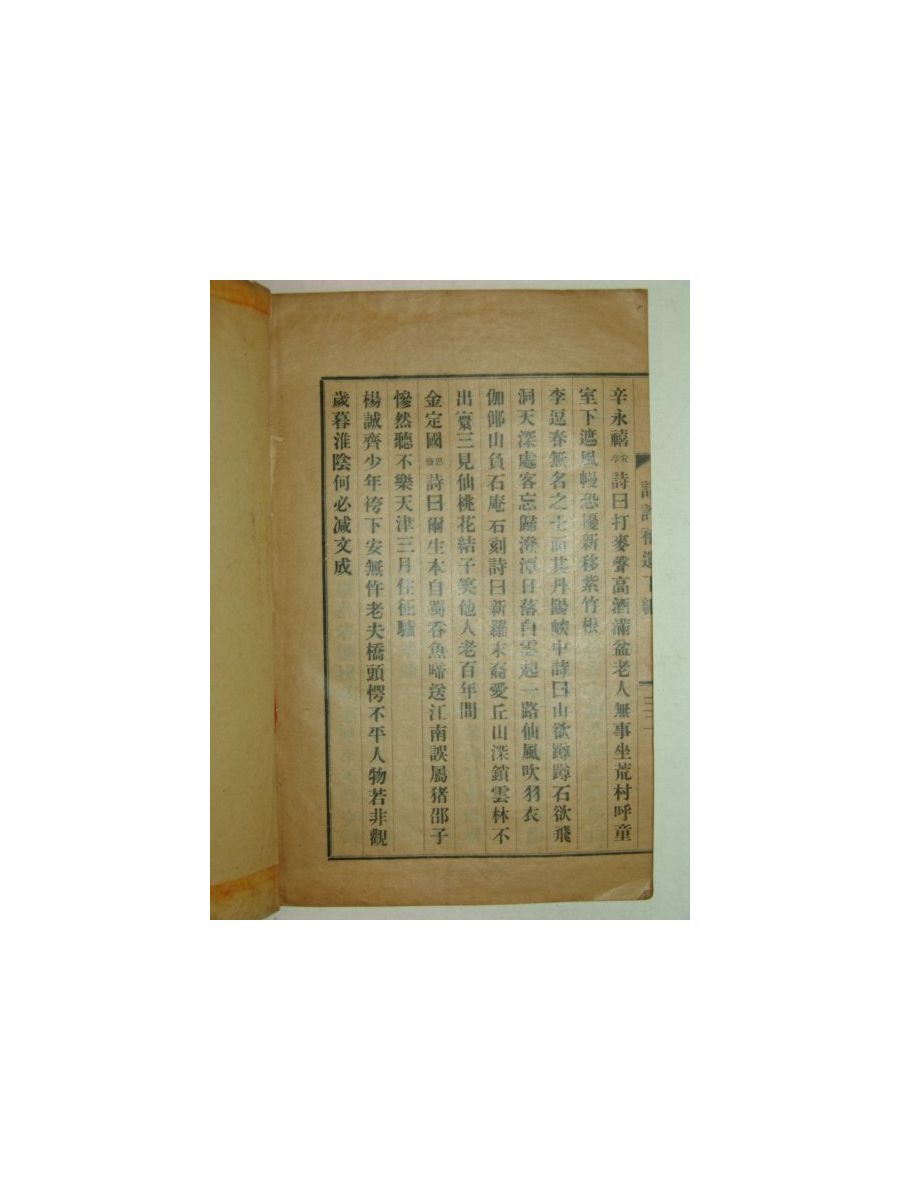 辛永禧安亭詩曰打麥聲高酒滿盆老人無事坐荒村呼童
室下遮風幔恐擾新移紫竹根
李逗春無名之士而其丹陽峽中詩曰山欲蹲蹲石欲飛
洞天深處客忘歸澄潭日落白雲起一路仙風吹羽衣
伽倻山負石庵石刻詩曰新羅末裔愛丘山深鎖雲林不
出寰三見仙桃花結子笑他人老百年間
金定國思齋詩曰爾生本自蜀吞魚啼送江南誤屬猪邵子
慘然聽不樂天津三月住征驢
楊誠齊少年袴下安無忤老夫橋頭愕不平人物若非觀
歲暮淮陰何必减文成